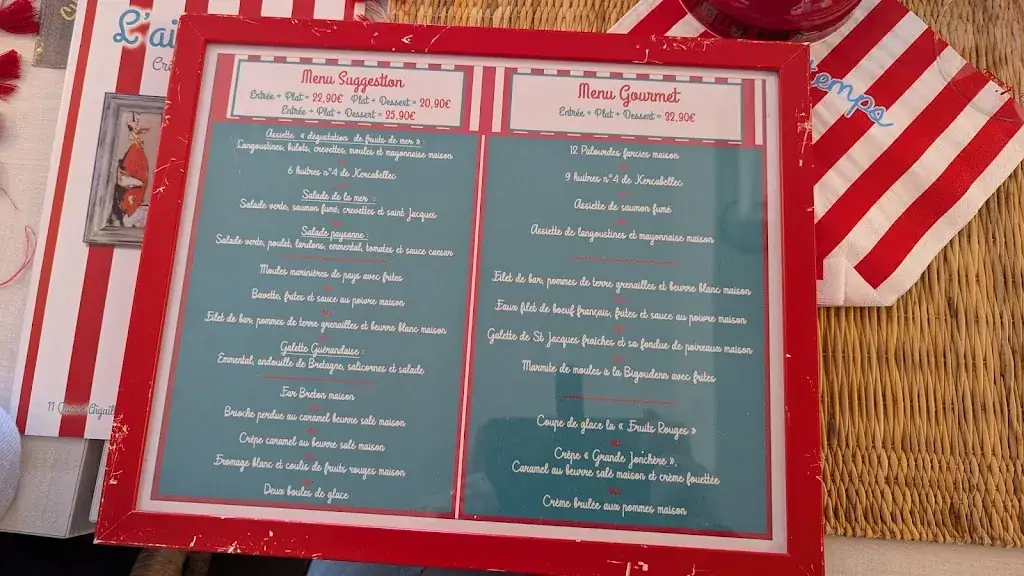 L'ai
Crê
11 Quai d'Aiguil
temps
Menu Suggestion
Entrée + Plat = 22,90€ Plat + Dessert = 20,90€
Entrée + Plat + Dessert = 25,90€
Assiette « dégustation de fruits de mer »
Langoustines, bulots, crevettes, moules et mayonnaise maison
ou
6 huîtres n°4 de Kercabellec
ou
Salade de la mer :
Salade verte, saumon fumé, crevettes et saint Jacques
ou
Salade paysanne :
Salade verte, poulet, lardons, emmental, tomates et sauce caesar
Moules marinières de pays avec frites
ou
Bavette, frites et sauce au poivre maison
ou
Filet de bar, pommes de terre grenailles et beurre blanc maison
ou
Galette Guérandaise :
Emmental, andouille de Bretagne, salicornes et salade
Far Breton maison
ou
Brioche perdue au caramel beurre salé maison
ou
Crêpe caramel au beurre salé maison
ou
Fromage blanc et coulis de fruits rouges maison
ou
Deux boules de glace
Menu Gourmet
Entrée + Plat + Dessert = 32,90€
12 Palourdes farcies maison
ou
9 huîtres n°4 de Kercabellec
ou
Assiette de saumon fumé
ou
Assiette de langoustines et mayonnaise maison
Filet de bar, pommes de terre grenailles et beurre blanc maison
ou
Faux filet de boeuf français, frites et sauce au poivre maison
ou
Galette de St Jacques fraîches et sa fondue de poireaux maison
ou
Marmite de moules à la Bigoudenn avec frites
Coupe de glace la « Fruits Rouges »
ou
Crêpe « Grande Jonchère »,
Caramel au beurre salé maison et crème fouettée
ou
Crème brulée aux pommes maison